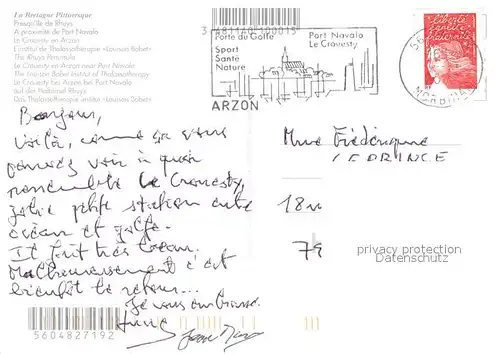 La Bretagne Pittoresque
Presqu'île de Rhuys
A proximité de Port Navalo
Le Crouesty en Arzon
L'institut de Thalassothérapie «Louison Bobet»
The Rhuys Peninsula
Le Crouesty en Arzon near Port Navalo
The Louison Bobet Institut of Thalassotherapy
Le Crouesty bei Arzon bei Port Navalo
auf der Halbinsel Rhuys
Das Thalassotherapie institut «Louison Bobet»
Porte du Golfe
Sport
Santé
Nature
Port Navalo
Le Crouesty
ARZON
MORBIHAN
liberté
égalité
fraternité
Bonjour,
Voilà, comme ça vous
pouvez voir à quoi
ressemble Le Crouesty,
jolie petite station entre
océan et golfe.
Il fait très beau.
Malheureusement c'est
bientôt le retour...
Je vous embrasse.
Mme Frédérique
LEPRINCE
18
79
privacy protection
Datenschutz
5604827192